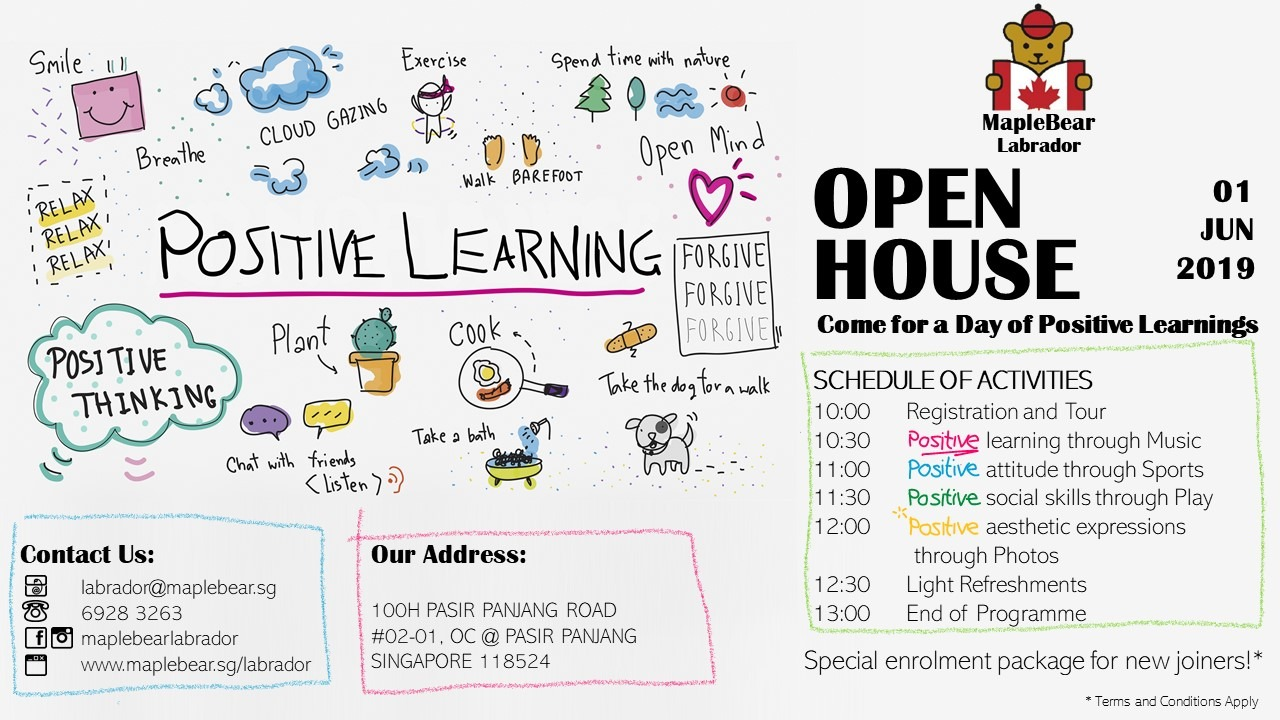 Smile
Breathe
CLOUD GAZING
Exercise
Walk BAREFOOT
Spend time with nature
Open Mind
RELAX
RELAX
RELAX
POSITIVE LEARNING
FORGIVE
FORGIVE
FORGIVE
POSITIVE
THINKING
Plant
COOK
Take the dog for a walk
Chat with friends
<listen>
Take a bath
MapleBear
Labrador
OPEN
HOUSE
01
JUN
2019
Come for a Day of Positive Learnings
SCHEDULE OF ACTIVITIES
10:00 Registration and Tour
10:30 Positive learning through Music
11:00 Positive attitude through Sports
11:30 Positive social skills through Play
12:00 Positive aesthetic expressions
through Photos
12:30 Light Refreshments
13:00 End of Programme
Special enrolment package for new joiners!*
* Terms and Conditions Apply
Contact Us:
labrador@maplebear.sg
6928 3263
maplebearlabrador
www.maplebear.sg/labrador
Our Address:
100H PASIR PANJANG ROAD
#02-01, OC @ PASIR PANJANG
SINGAPORE 118524